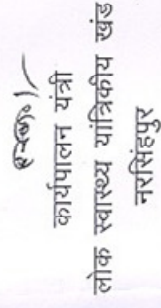 कार्यपालन यंत्री
लोक स्वास्थ्य यांत्रिकीय खंड
नरसिंहपुर